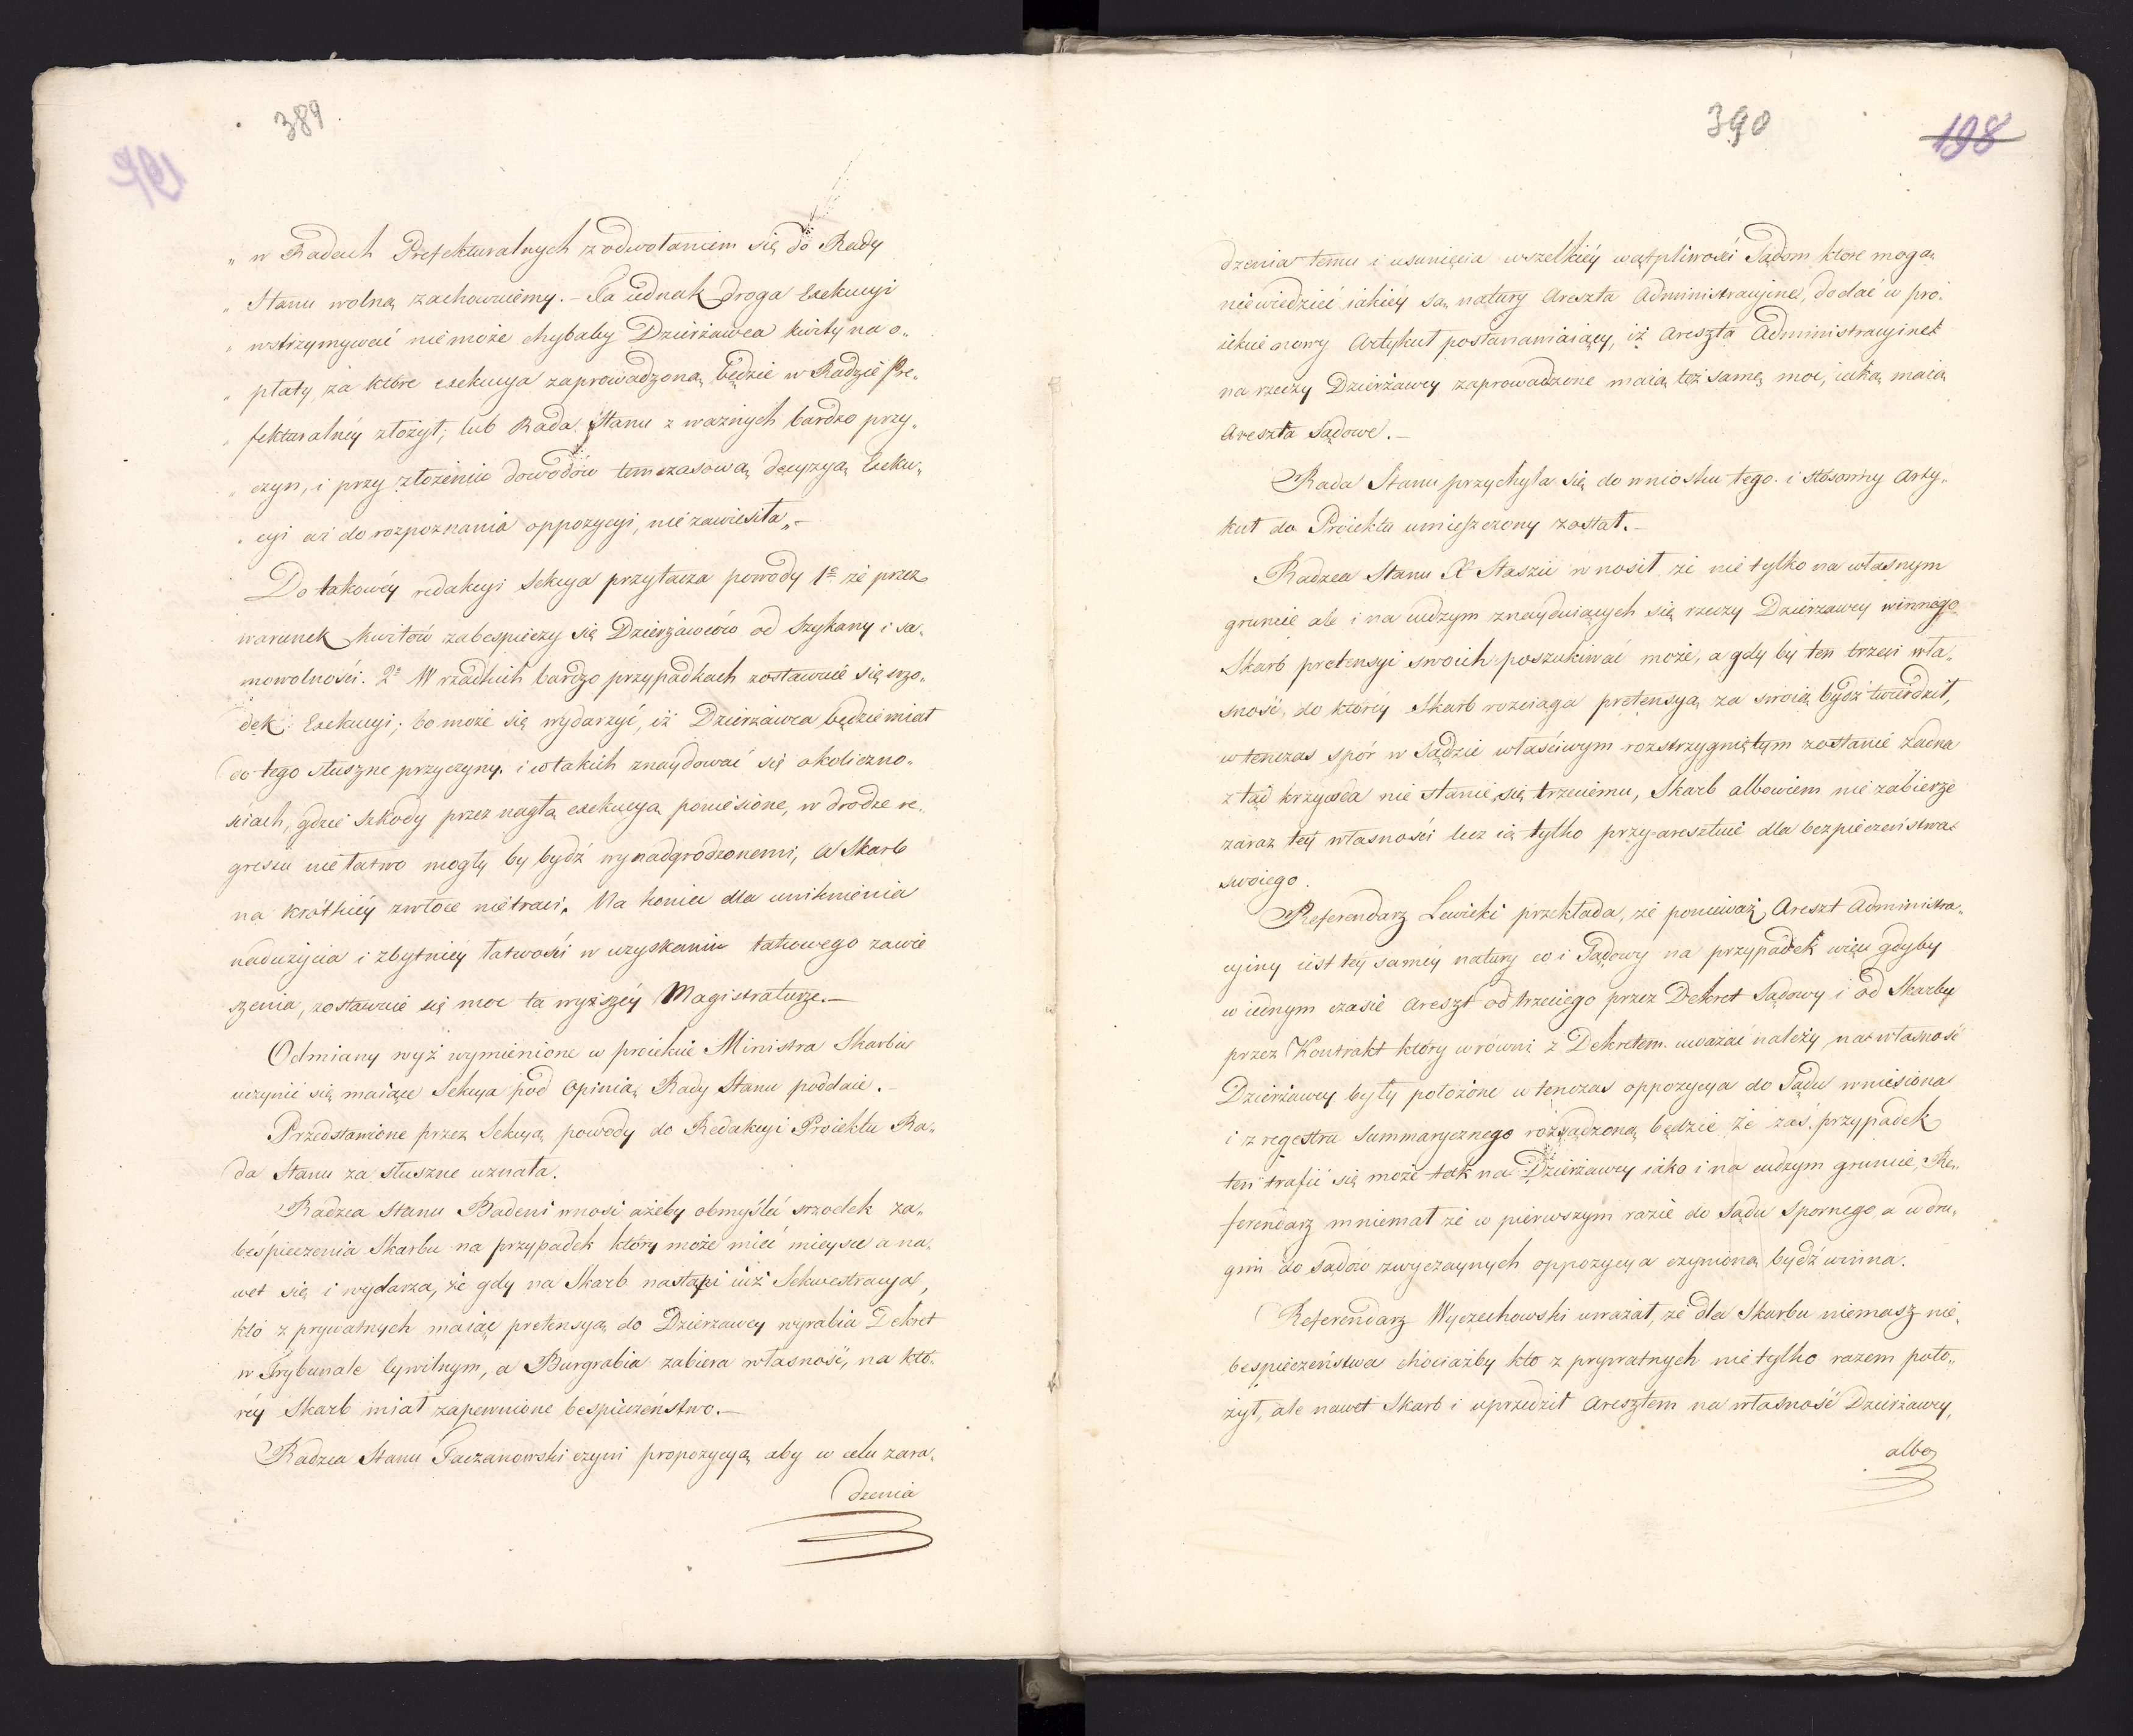 389
„ w Radach Prefekturalnych z odwołaniem się do Rady
„ Stanu wolną zachowuiemy. – Ta iednak droga Exekucyi
„ wstrzymywać niemoże chybaby Dzierżawca kwity na o„
„ płaty, za które exekucya zaprowadzoną będzie w Radzie Pre„
„ fekturalnéy złożył; lub Rada Stanu z ważnych bardzo przy„
„ czyn, i przy złożeniu dowodów temczasową decyzyą Exeku„
„ cyi aż do rozpoznania oppozycyi, nie zawiesiła„ –
Do takowéy redakcyi Sekcya przytacza powody 1º że przez
warunek kwitów zabespieczy się Dzierżawców od Szykany i sa„
mowolności. 2º W rzadkich bardzo przypadkach zostawuie się srzo„
dek Exekucyi; bo może się wydarzyć, iż Dzierżawca będzie miał
do tego słuszne przyczyny. i w takich znaydować się okoliczno„
ściach, gdzie szkody przez nagłą exekucyą poniesione, w drodze re„
gressu nie łatwo mogły by bydź wynadgrodzonemi, a Skarb
na krótkiéy zwłoce nietraci. Na koniec dla uniknienia
nadużycia i zbytniéy łatwości w uzyskaniu takowego zawie
szenia, zostawuie się moc ta wyższéy Magistraturze. –
Odmiany wyż wymienione w proiekcie Ministra Skarbu
uczynić się maiące Sekcya pod Opinią Rady Stanu poddaie. –
Przedstawione przez Sekcyą powody do Redakcyi Proiektu Ra„
da Stanu za słuszne uznała.
Radzca Stanu Badeni wnosi ażeby obmyślić srzodek za„
beśpieczenia Skarbu na przypadek który może mieć mieysce a na„
wet się i wydarza, że gdy na Skarb nastąpi iuż Sekwestracya,
kto z prywatnych maiąc pretensyą do Dzierzawcy wyrabia Dekret
w Trybunale Cywilnym, a Burgrabia zabiera własność, na któ„
réy Skarb miał zapewnione bespieczeństwo. –
Radzca Stanu Taczanowski czyni propozycyą aby w celu zara„
dzenia
390
198
dzenia temu i usunięcia wszelkiéy wątpliwości Sądom które mogą
niewiedzieć iakiéy są natury Areszta Administracyine, dodać w pro„
iekcie nowy Artykuł postanawiaiący, iż Areszta Administracyine
na rzeczy Dzierżawcy zaprowadzone maią też samą moc, iaką maią
Areszta Sądowe. –
Rada Stanu przychyla się do wniosku tego. i stosowny Arty„
kuł do Proiektu umieszczony został. –
Radzca Stanu X Staszic wnosił, że nie tylko na własnym
gruncie ale i na cudzym znayduiących się rzeczy Dzierzawcy winnego
Skarb pretensyi swoich poszukiwać może, a gdy by ten trzeci wła„
sność, do któréy Skarb rozciąga pretensyą za swoią bydź twierdził,
w tenczas spór w Sądzie właściwym rozstrzygniętym zostanie żadna
ztąd krzywda nie stanie się trzeciemu, Skarb albowiem nie zabierze
zaraz téy własności lecz ią tylko przy-aresztuie dla bezpieczeństwa
swoiego.
Referendarz Lewicki przekłada, że ponieważ Areszt Administra„
cyiny iest téy saméy natury co i Sądowy na przypadek więc gdyby
w iednym czasie Areszt od trzeciego przez Dekret Sądowy i od Skarbu
przez Kontrakt który w równi z Dekretem uważać należy, na własność
Dzierżawcy były położone w tenczas oppozycya do Sądu wniesiona
i z regestru Summarycznego rozsądzoną będzie że zaś przypadek
ten trafić się może tak na Dzierżawcy iako i na cudzym gruncie, Re„
ferendarz mniemał że w pierwszym razie do Sądu Spornego, a w dru„
gim do sądów zwyczaynych oppozycya czynioną bydź winna.
Referendarz Wyczechowski uważał, że dla Skarbu niemasz nie„
bespieczeństwa chociażby kto z prywatnych nie tylko razem poło„
żył, ale nawet Skarb i uprzedził Aresztem na własność Dzierżawcy,
albo